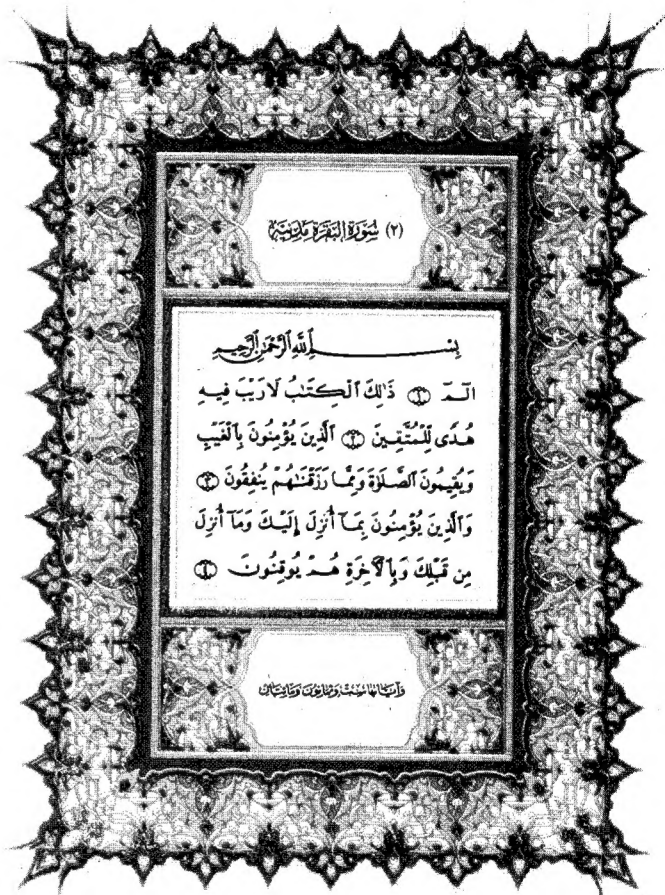 (٢) سُورَةُ البَقَرَةِ مَدَنِيَّةٌ
بِسْمِ ٱللَّهِ ٱلرَّحْمَٰنِ ٱلرَّحِيمِ
الٓمٓ ۝١ ذَٰلِكَ ٱلْكِتَٰبُ لَا رَيْبَ فِيهِ
هُدًى لِّلْمُتَّقِينَ ۝٢ ٱلَّذِينَ يُؤْمِنُونَ بِٱلْغَيْبِ
وَيُقِيمُونَ ٱلصَّلَوٰةَ وَمِمَّا رَزَقْنَٰهُمْ يُنفِقُونَ ۝٣
وَٱلَّذِينَ يُؤْمِنُونَ بِمَآ أُنزِلَ إِلَيْكَ وَمَآ أُنزِلَ
مِن قَبْلِكَ وَبِٱلْأٓخِرَةِ هُمْ يُوقِنُونَ ۝٤
وآياتها ست وثمانون ومائتان